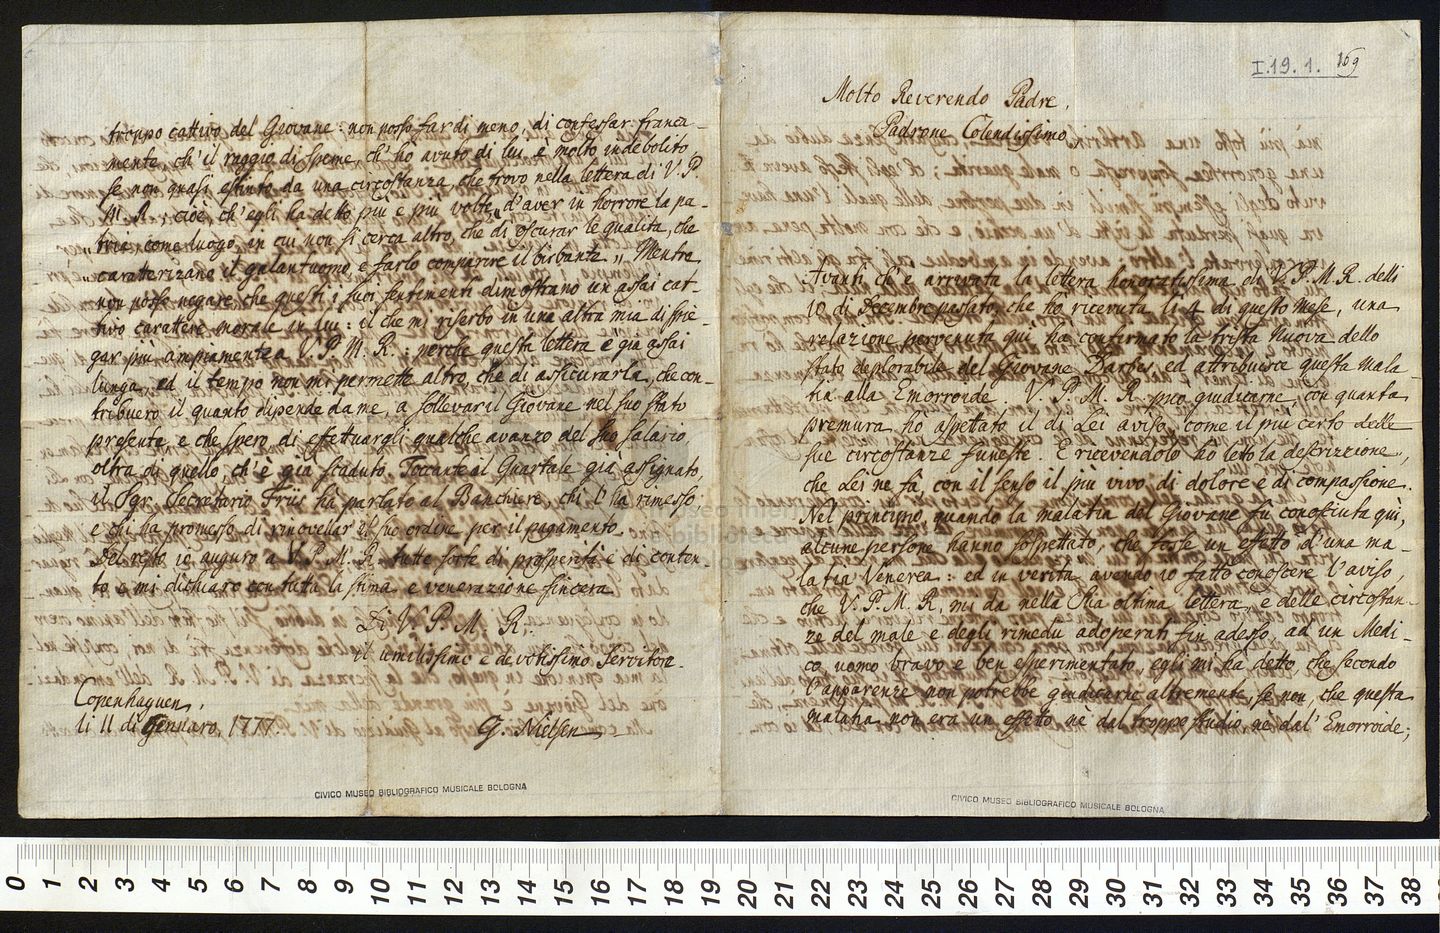 I.19.1. 169
Molto Reverendo Padre,
Padrone Colendissimo,
Avanti ch'è arrivata la lettera honoratissima di V. P. M. R. delli
10 di Decembre passato, che ho ricevuta li 4 di questo Mese, una
relazione pervenuta quì ha confirmato la trista Nuova dello
stato deplorabile del Giovane Barbes, ed attribuisce questa mala-
tia alla Emorroide. V. P. M. R. può giudicarne, con quanta
premura ho aspettato il di Lei aviso, come il più certo delle
sue circostanze funeste. E ricevendolo hò leto la descrizzione,
che Lei ne fà, con il senso il più vivo di dolore e di compassione.
Nel principio, quando la malatia del Giovane fu conosciuta quì,
alcune persone hanno sospettato, che fosse un effetto d'una ma-
latia Venerea: ed in verità avendo io fatto conoscere l'aviso,
che V. P. M. R. mi da nella Sua ultima lettera, e delle circostan-
ze del male e degli rimedii adoperati fin adesso, ad un Medi-
co, uomo bravo e ben esperimentato, egli mi ha detto, che secondo
l'apparenze non potrebbe giudicarne altremente, se non, che questa
malatia non era un effetto nè dal troppo studio, nè dal' Emorroide;
troppo cattivo del Giovane: non posso far di meno, di confessar franca-
mente ch'il raggio di speme, ch'hò avuto di lui, è molto indebolito,
se non quasi estinto da una circostanza, che trovo nella lettera di V. P.
M. R. cioè, ch'egli ha detto più e più volte „d'aver in horrore la pa-
„tria, come luogo, in cui non si cerca altro, che di oscurar le qualità, che
„caratterizano il galantuomo, e farlo comparire il birbante„. Mentre
non posso negare, che questi suoi sentimenti dimostrano un assai cat-
tivo carattere morale in lui: il che mi riserbo in una altra mia di spie-
gar più ampiamente a V. P. M. R.; perche questa lettera è già assai
lunga, ed il tempo non mi permette altro, che di assicurarla, che con-
tribuerò il quanto dipende da me, a sollevar il Giovane nel suo stato
presente, e che spero di effettuargli qualche avanzo del suo salario,
oltra di quello ch'è già scaduto. Toccante al Quartale già assignato,
il Sgr. Secretario Friis hà parlato al Banchiere, chi l'ha rimesso
e chi ha promesso di rinovellar il suo ordine per il pagamento.
Del resto io auguro a V. P. M. R. tutte sorte di prosperità e di conten-
to e mi dichiaro con tutta la stima e venerazione sincera
Di V. P. M. R.
il umilissimo e devotissimo Servitore
Copenhaguen,
li 11 di Gennaro, 1777.
G. Nielsen
CIVICO MUSEO BIBLIOGRAFICO MUSICALE BOLOGNA
CIVICO MUSEO BIBLIOGRAFICO MUSICALE BOLOGNA
0 1 2 3 4 5 6 7 8 9 10 11 12 13 14 15 16 17 18 19 20 21 22 23 24 25 26 27 28 29 30 31 32 33 34 35 36 37 38